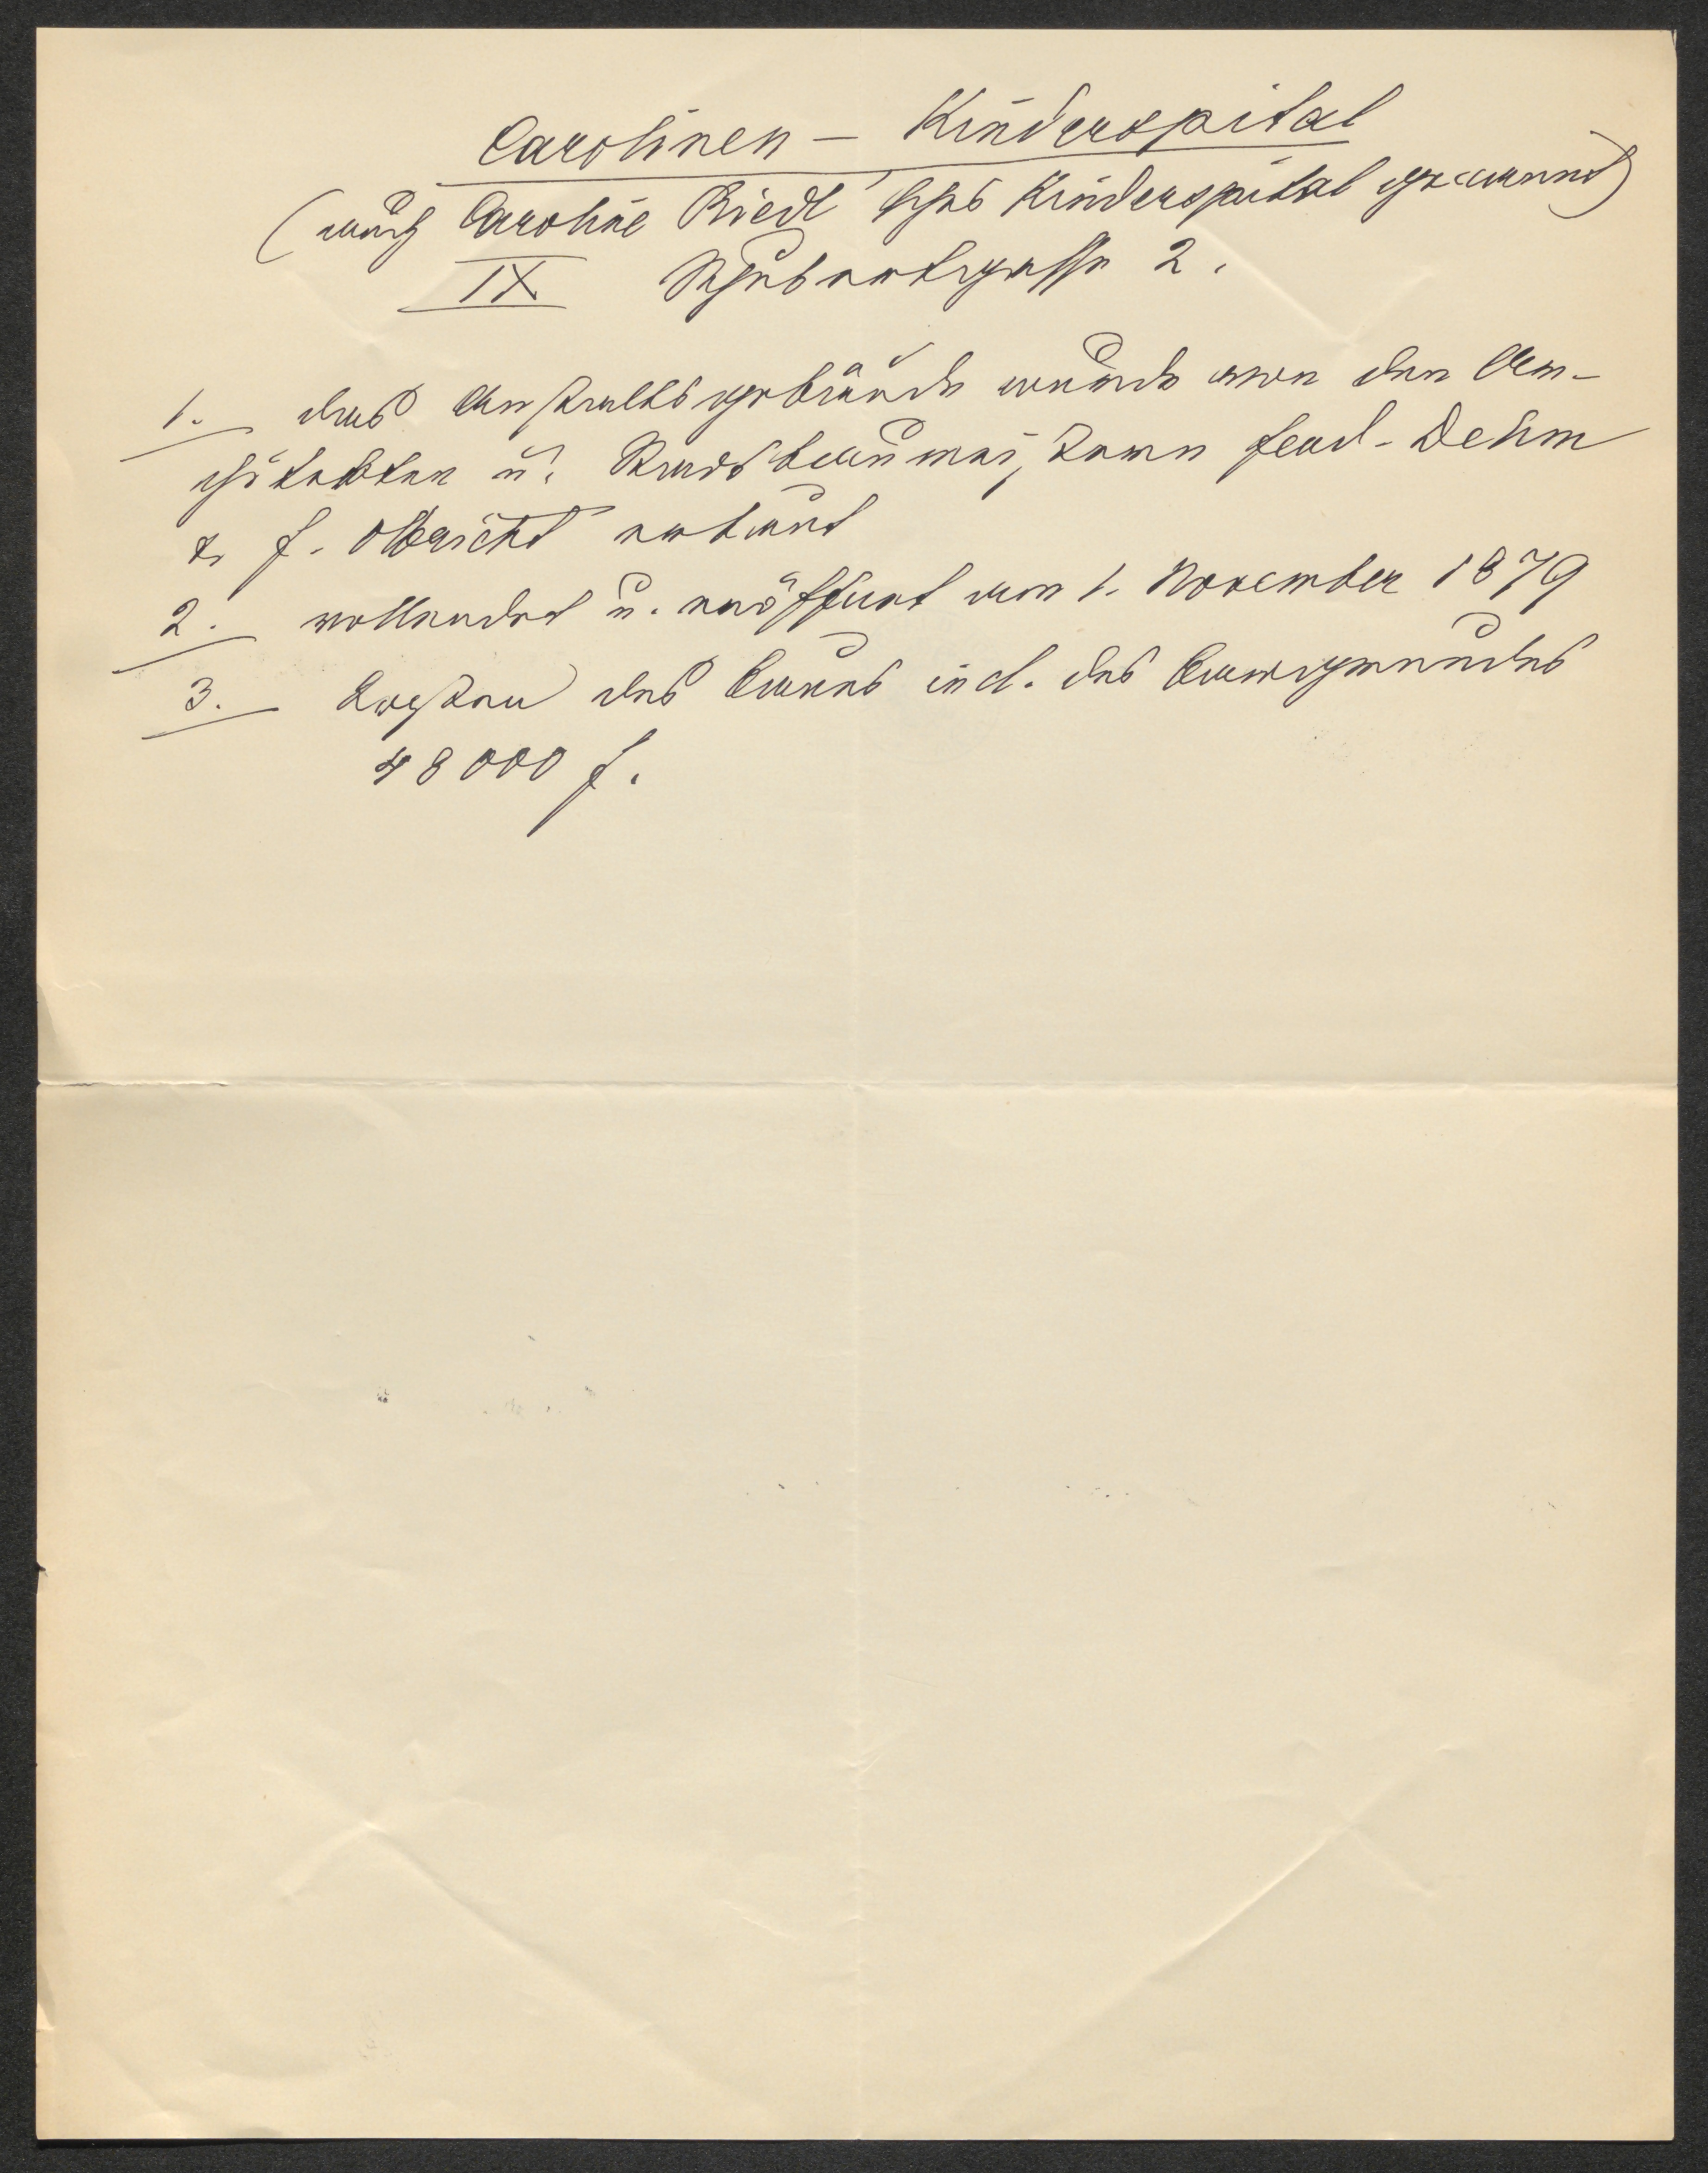 Carolinen – Kinderspital
(auch Caroline Riedl'sches Kinderspital genannt)
IX Schubertgasse 2.
1. das Anstaltsgebäude wurde von den Ar-
chitekten u. Stadtbaumeistern Ferd. Dehm
& F. Olbricht erbaut
2. vollendet u. eröffnet am 1. November 1879
3. Kosten des Baues incl. des Baugrundes
48000 f.